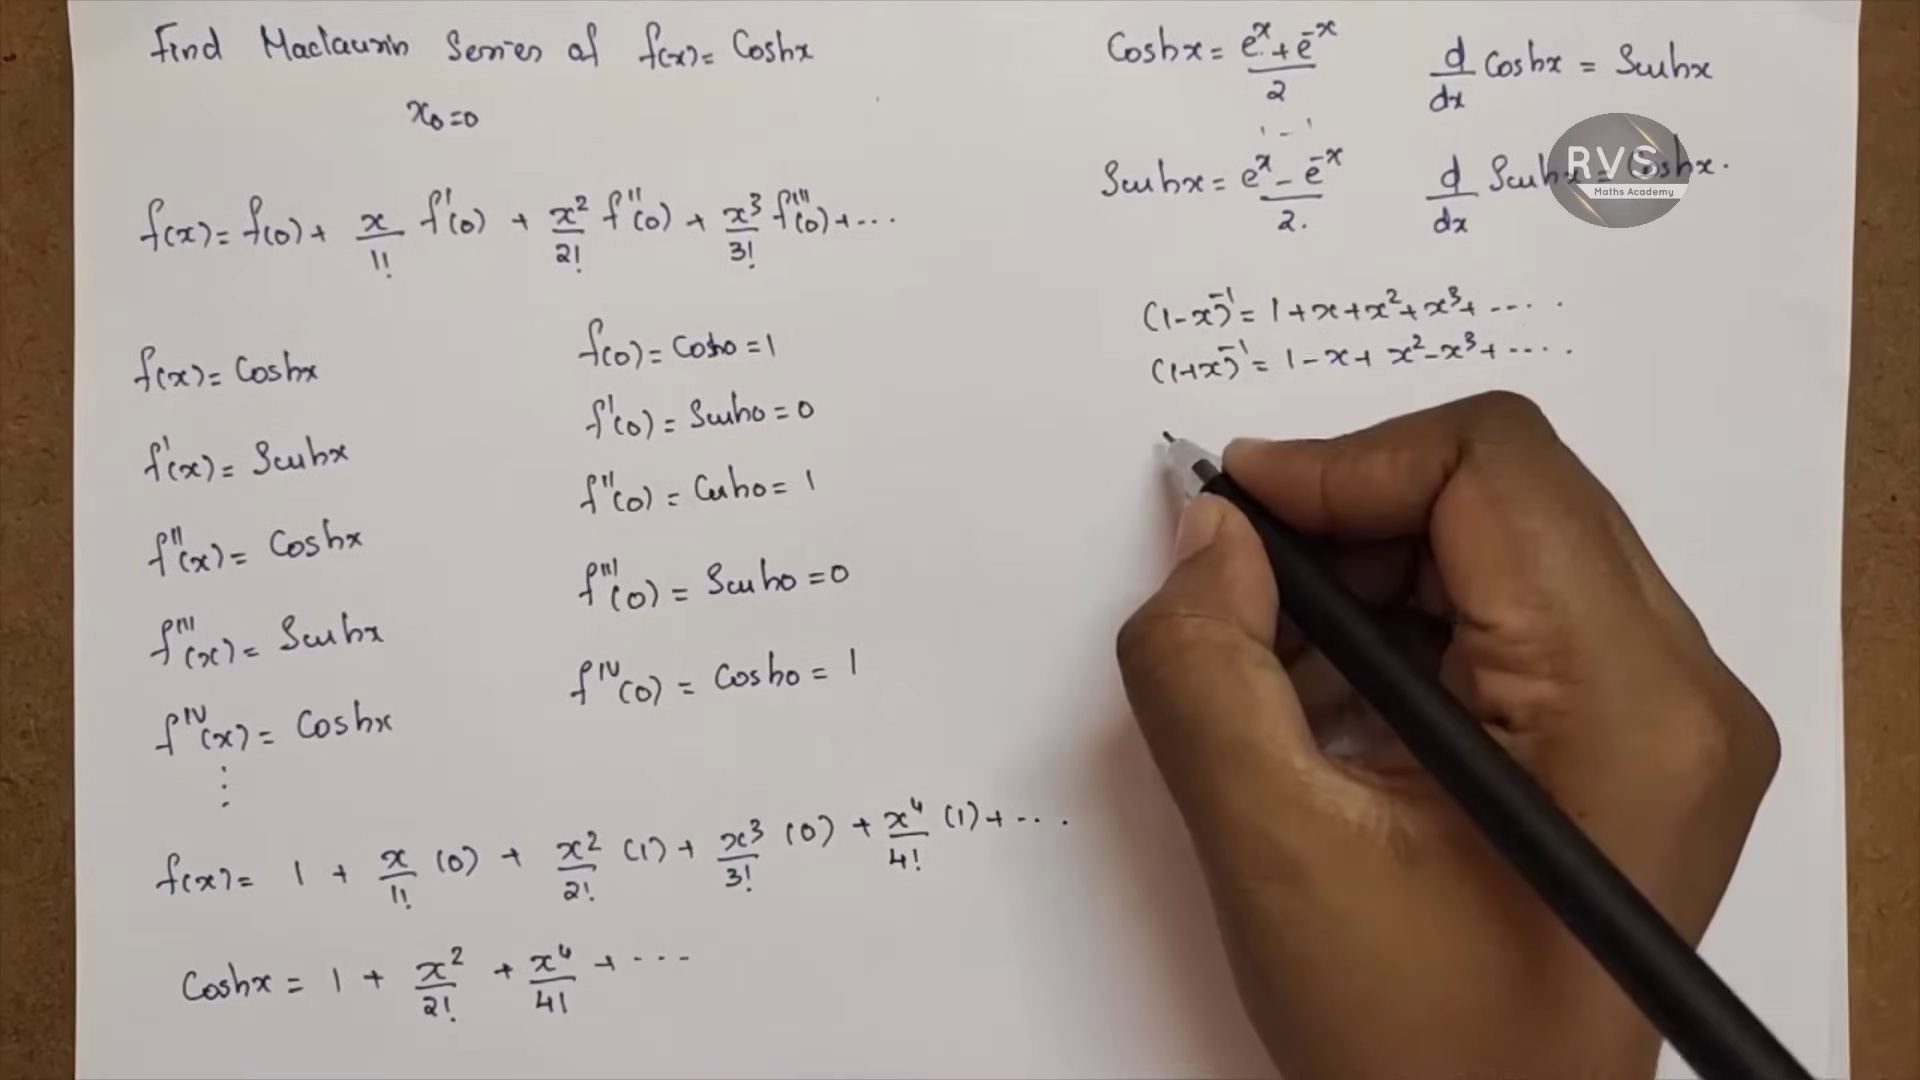 Find Maclaurin Series of f(x) = Coshx
x₀=0
f(x) = f(0) + x/1! f'(0) + x²/2! f''(0) + x³/3! f'''(0) + ...
f(x) = Coshx
f'(x) = Sinhx
f''(x) = Coshx
f'''(x) = Sinhx
f^IV(x) = Coshx
⋮
f(0) = Cosh0 = 1
f'(0) = Sinh0 = 0
f''(0) = Cosh0 = 1
f'''(0) = Sinh0 = 0
f^IV(0) = Cosh0 = 1
f(x) = 1 + x/1! (0) + x²/2! (1) + x³/3! (0) + x⁴/4! (1) + ...
Coshx = 1 + x²/2! + x⁴/4! + ...
Coshx = (e^x + e^-x)/2
d/dx Coshx = Sinhx
Sinhx = (e^x - e^-x)/2.
d/dx Sinhx = Coshx.
(1-x)^-1 = 1+x+x²+x³+ .....
(1+x)^-1 = 1-x+x²-x³+ .....
RVS
Maths Academy